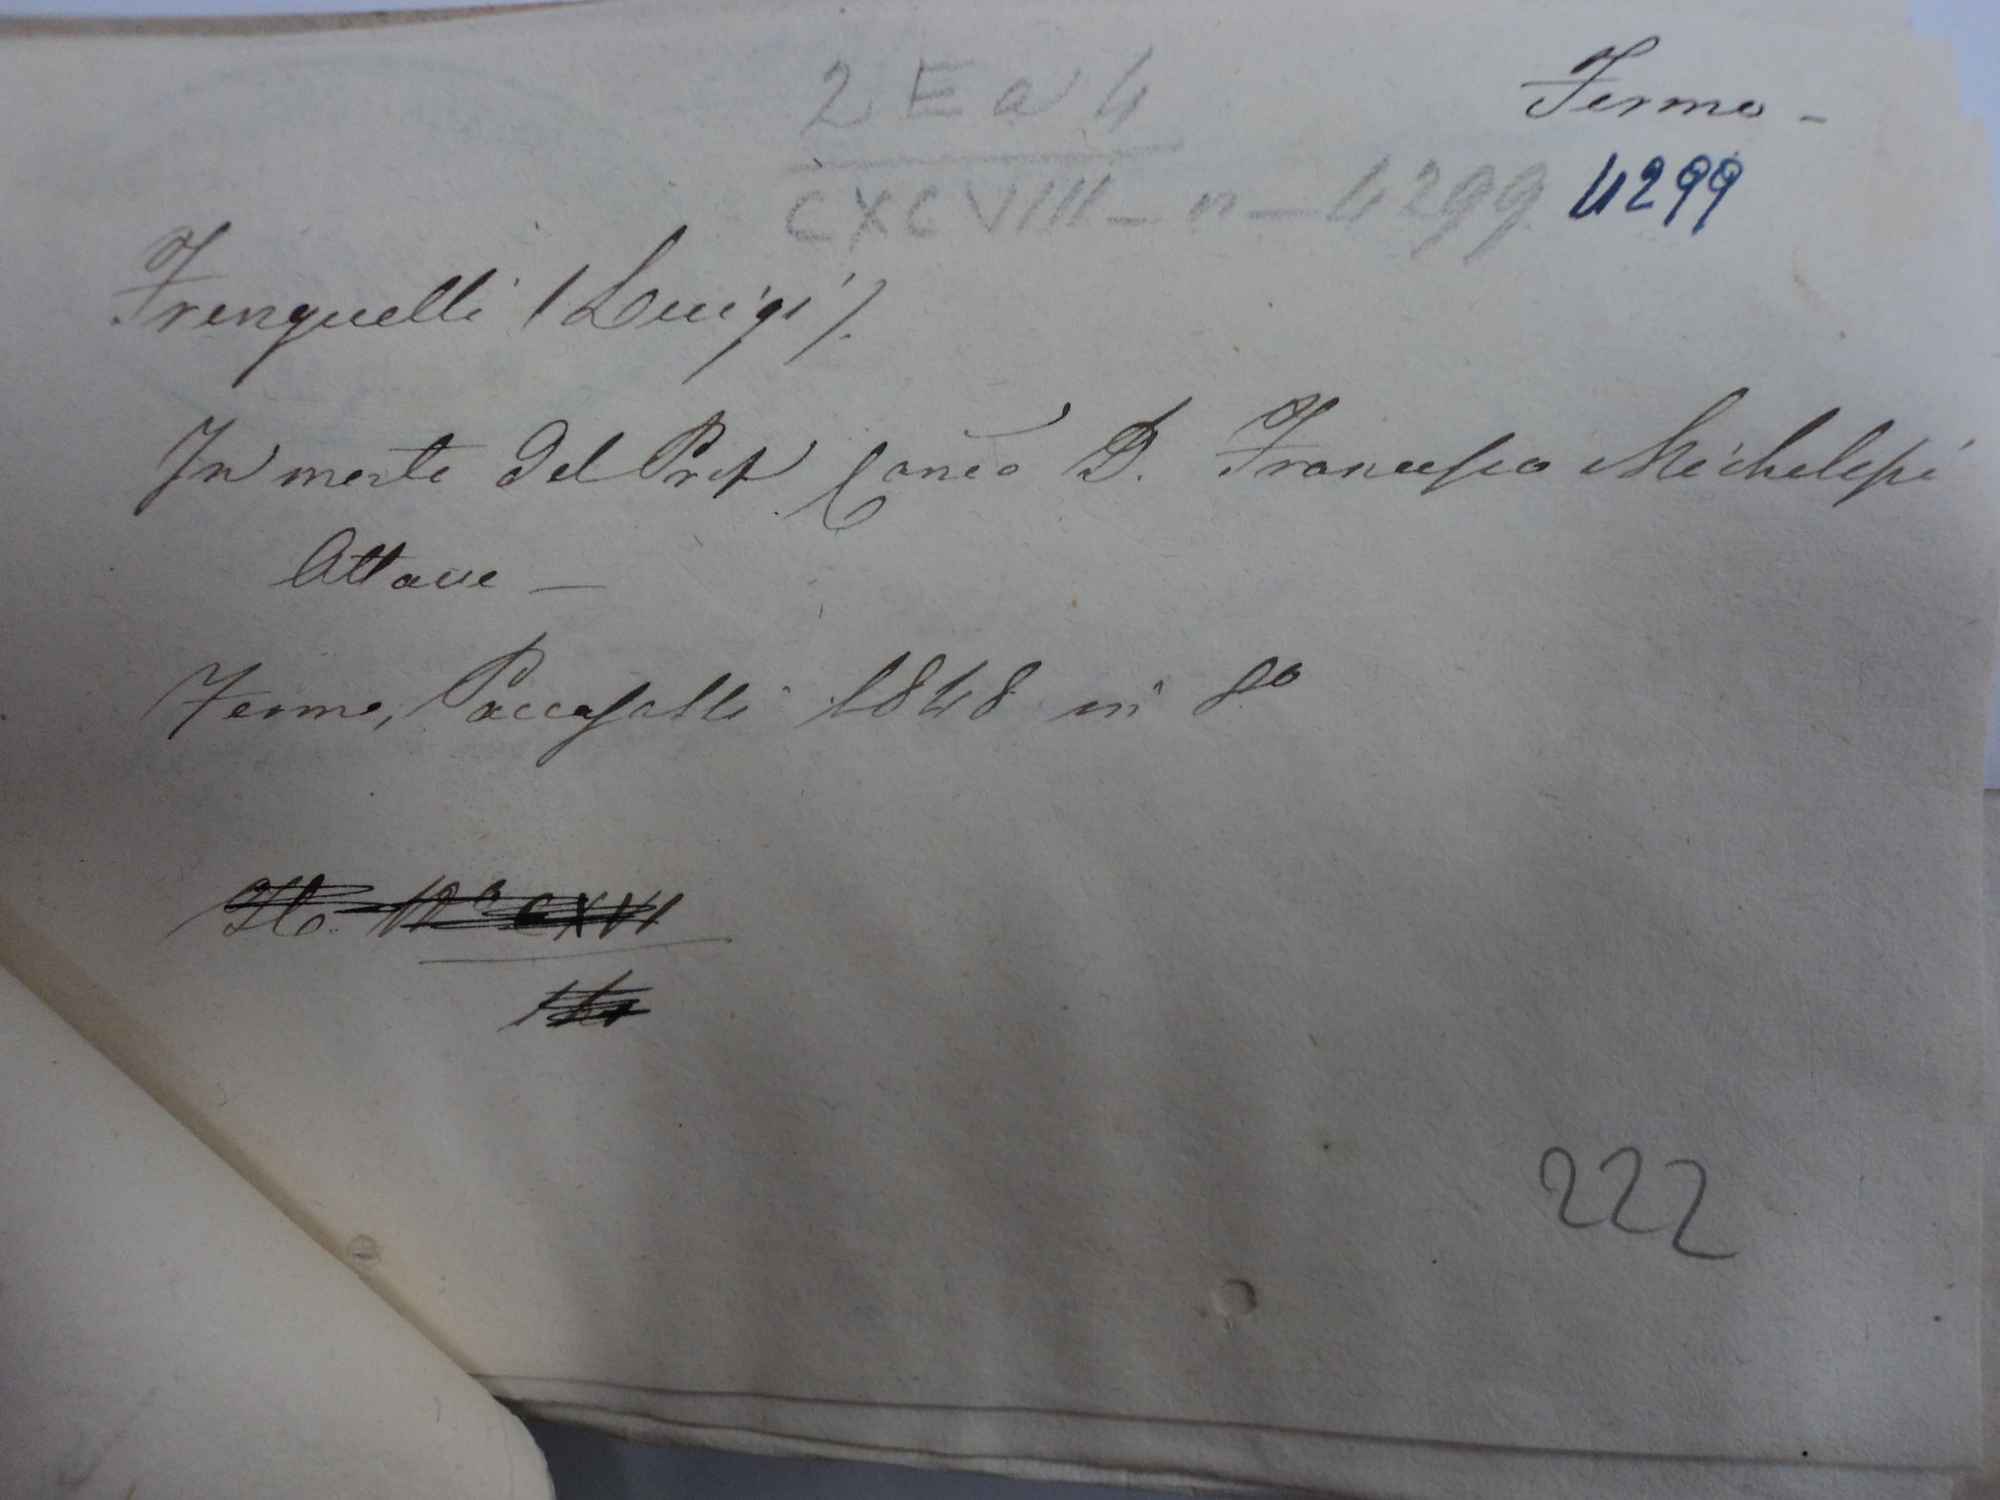 2 E a 4
Fermo -
CXCVIII - n - 4299
4299
Frenguelli (Luigi).
In morte del Prof Canco D. Francesco Michelesi
Ottave —
Fermo, Paccasassi 1848 in 8º
CXVI
222